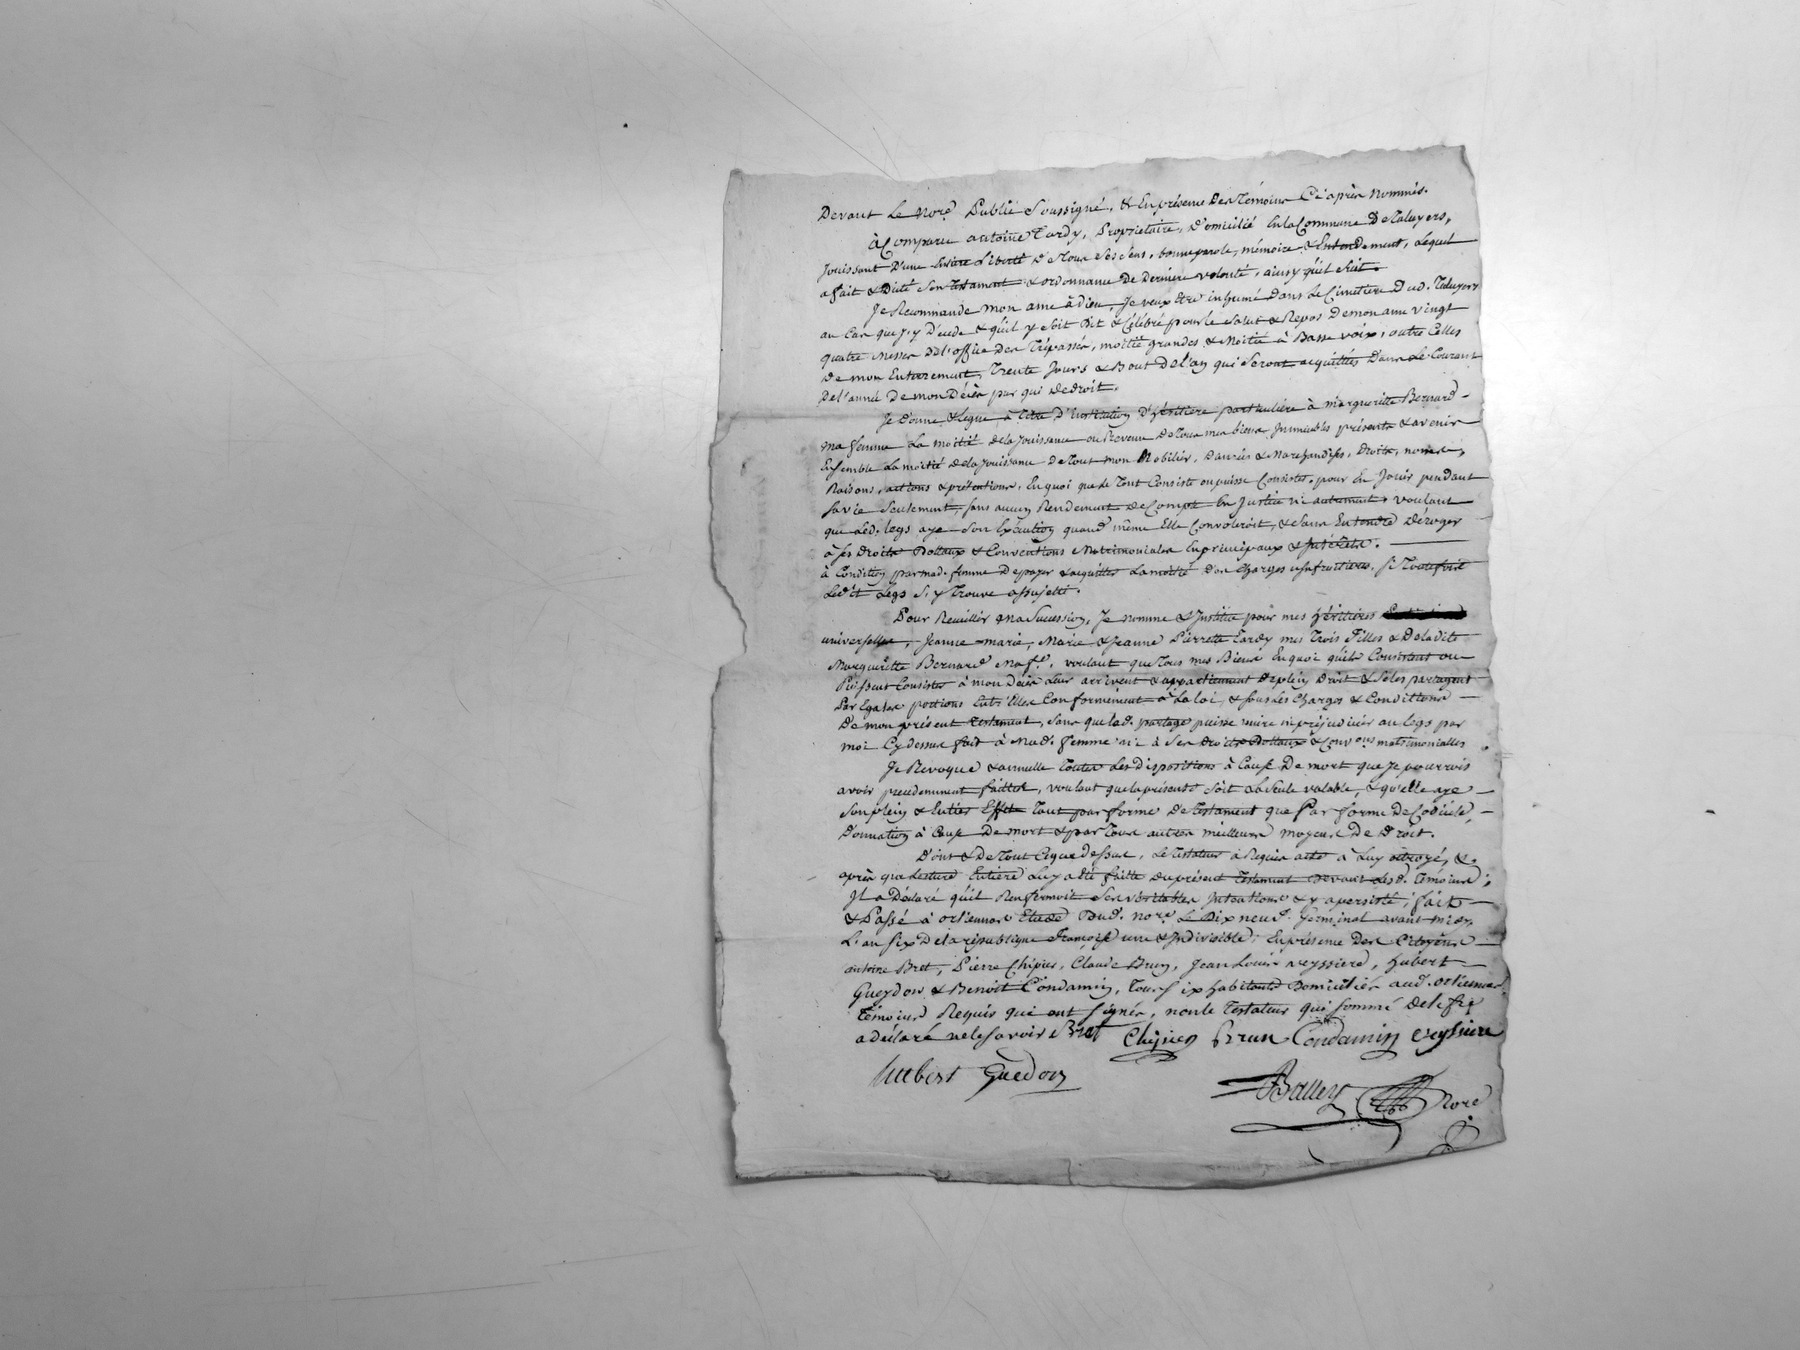 Devant Le Nore. Public Soussigné, & En présence Des Témoins Cé après Nommés.
à Comparu antoine Tardy, Proprietaire, Domicilié En la Commune De Taluyers,
Jouissant D'une Entière Liberté De Tous Ses Sens, bonne parole, mémoire & Entendement, Lequel
a fait & Dicté Son Testament & ordonnance De Derniere volonté, ainsy qu'il Suit.
Je Recommande Mon ame à dieu, Je veux Etre inhumé Dans Le Cimetiere Dud. Taluyers
au Cas que J'y Décede & qu'il y Soit Dit & Célébré pour le Salut & Repos De mon ame vingt
quatre Messes De l'office Des Trépassés, moitié grandes & Moitié à Basse voix, outre Celles
De mon Enterrement, Trente Jours & Bout De l'an qui Seront acquittées Dans Le Courant
De l'année De mon Décès par qui De droit.
Je Donne & Legue à titre D'institution D'héritiere particuliere à Marguerite Bernard
Ma femme La moitié de la Jouissance ou Revenu De Tous mes biens Immeubles présents & avenir
Ensemble La moitié De la Jouissance De Tout Mon Mobilier, Danrées & Marchandises, Droits, noms,
Raisons, actions & prétentions, En quoi que le Tout Consiste ou puisse Consister, pour En Jouir pendant
Sa vie Seulement, Sans aucun Rendement De Compte En Justice ni autrement, voulant
que led. legs aye Son Exécution quand même Elle Convoleroit, & Sans Entendre Déroger
à Ses Droits Dottaux & Conventions Matrimoniales En principaux & intérêts.
à Condition par mad. femme De payer & acquitter La moitié Des Charges usufruitieres, Si Toutefois
Ledit Legs S'y Trouve assujetti.
Pour Recueillir Ma Succession, Je nomme & Institue pour mes Héritieres
universelles, Jeanne marie, Marie & Jeanne Pierrette Tardy mes Trois Filles & De ladite
Marguerite Bernard Ma fe., voulant que Tous mes Biens En quoi qu'ils Consistent ou
Puissent Consister à mon Décès Leur arrivent & appartiennent De plein Droit & Se les partagent
Par Egales portions Entr'Elles Conformément à La loi, & Sous Les Charges & Conditions
De mon présent Testament, Sans que led. partage puisse nuire ni préjudicier au legs par
moi Cy dessus fait à Mad. femme ni à Ses droits Dottaux & Convons matrimonialles
Je Revoque & annulle Toutes Les Dispositions à Cause De mort que Je pourrois
avoir précedemment faittes, voulant que la présente Soit La Seule valable, & qu'elle aye
Son plein & Entier Effet Tant par forme De Testament que Par forme De Codicile,
Donnation à Cause De mort & par Tous autres meilleurs moyens De Droit.
Dont & De Tout Ce que Dessus, Le Testateur à Requis acte à Luy octroyé, &
après que Lecture Entiere Luy a Eté faitte Du présent Testament Devant Lesd. Témoins,
Il a Déclaré qu'il Renfermoit Ses véritables Intentions & y a persisté; fait
& Passé à orlienas Etude Dud. nore. Le Dix neuf Germinal avant midy,
L'an Six De la république françoise une & Indivisible; En présence Des Citoyens
antoine Bret, Pierre Chipier, Claude Brun, Jean Louis veyssiere, hubert
Gueydon & Benoit Condamin, Tous Six habitants Domiciliés aud. orlienas,
Témoins Requis qui ont Signés, non le Testateur qui Sommé De le fre
a déclaré ne le Savoir Bret Chipier Brun Condamin veyssiere
hubert Guédon
Balley Nore